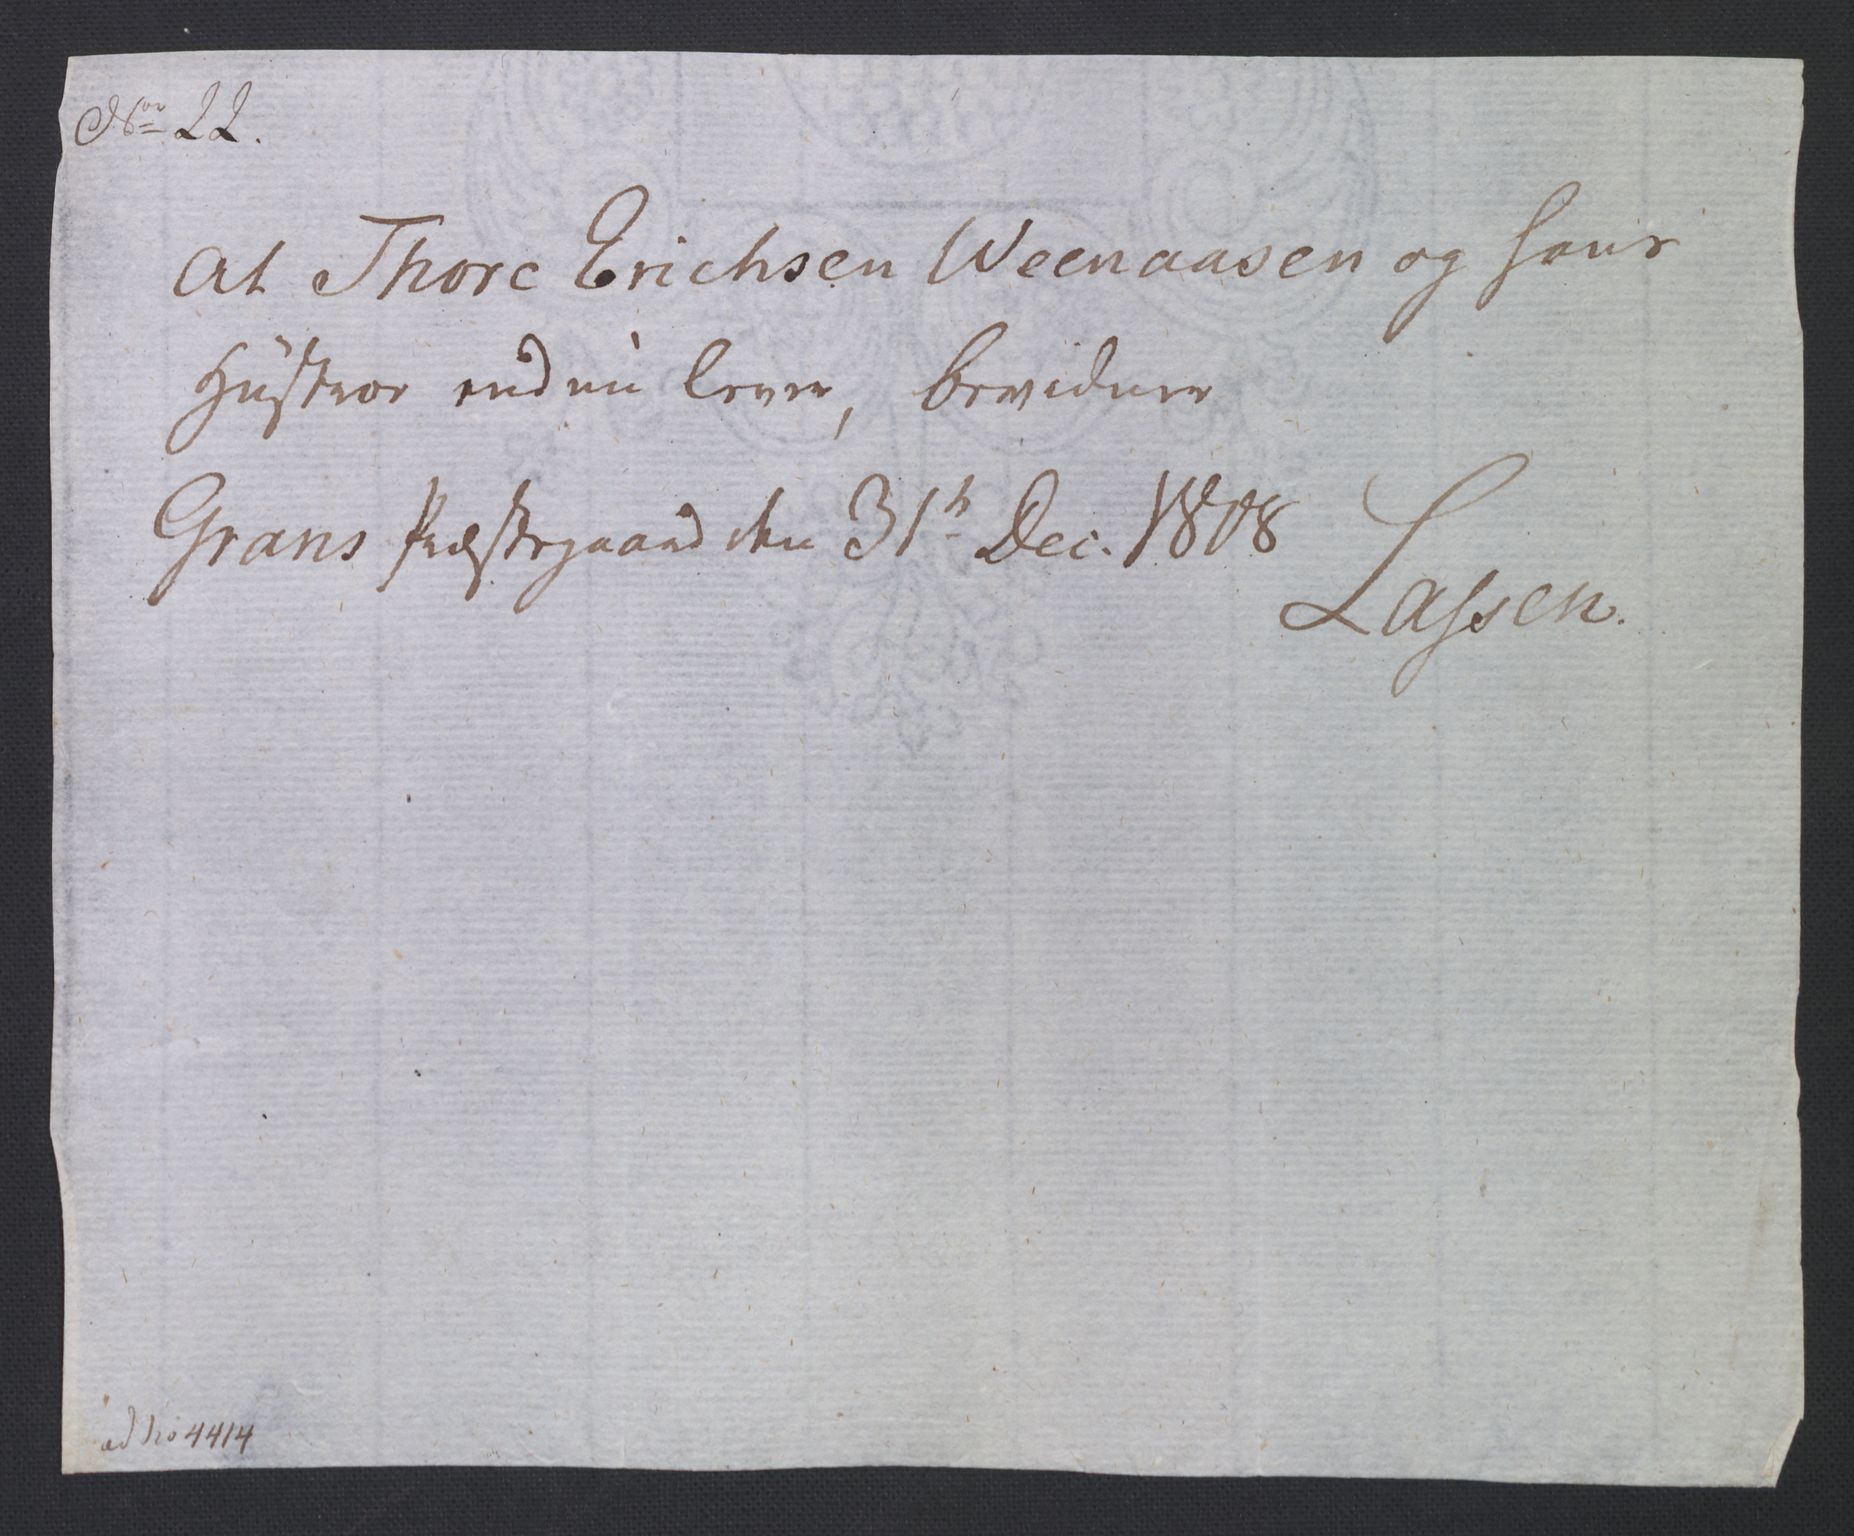 Nor 22.
at Thore Erichsen Weenaasen og hans
Hústroe endnú lever, bevidner
Grans Præstegaard den 31te Dec. 1808
Lassen.
ad No 4414